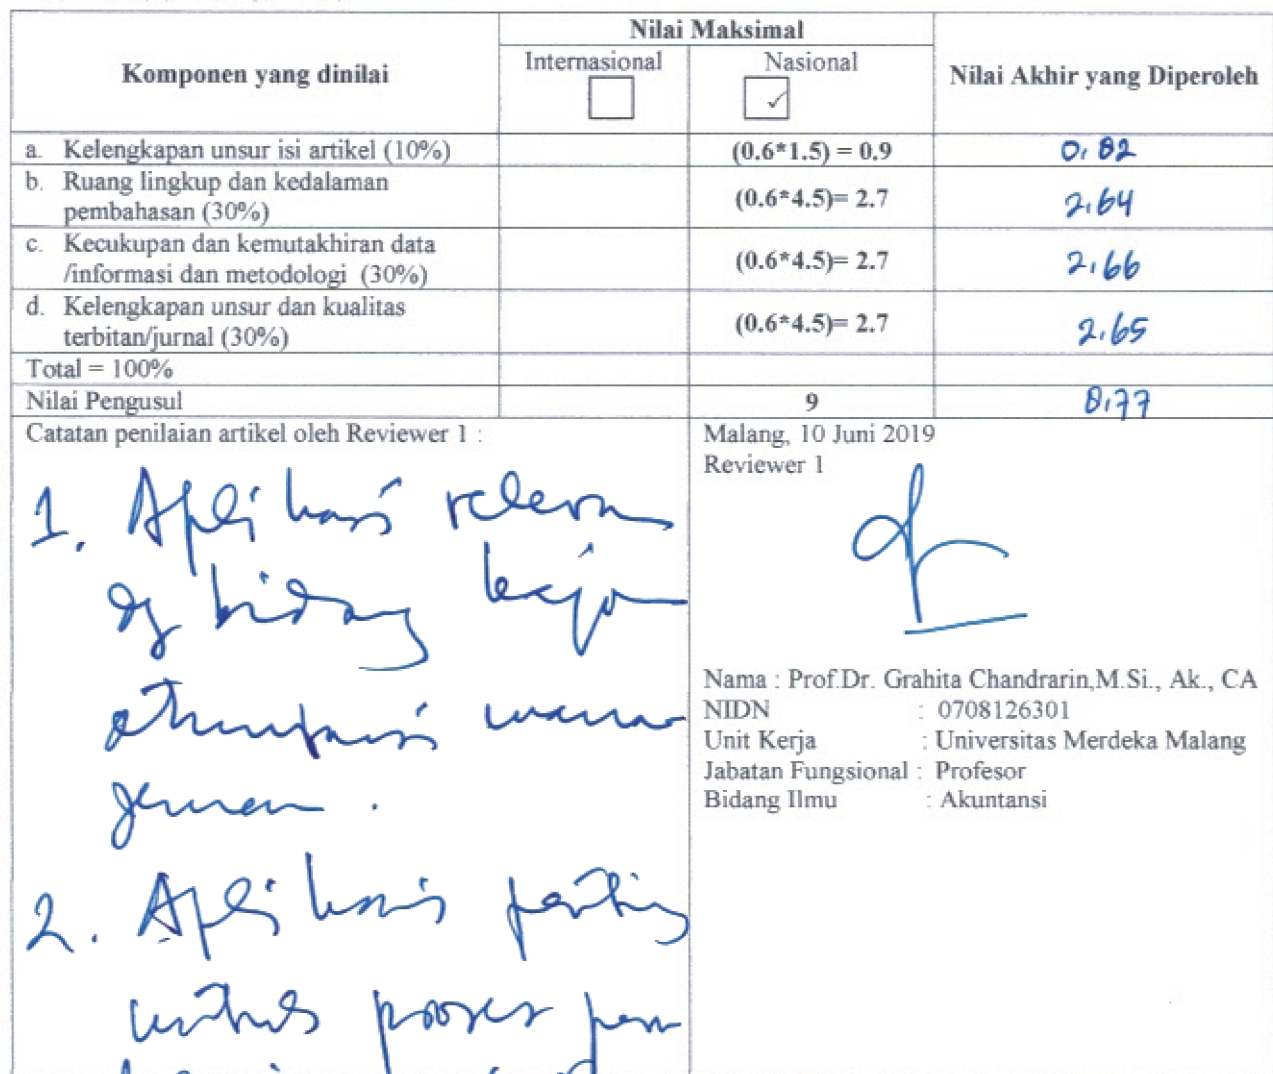 Nilai Maksimal
Komponen yang dinilai
Internasional
Nasional
Nilai Akhir yang Diperoleh
✓
a. Kelengkapan unsur isi artikel (10%) (0.6*1.5) = 0.9 0,82
b. Ruang lingkup dan kedalaman
pembahasan (30%) (0.6*4.5)= 2.7 2,64
c. Kecukupan dan kemutakhiran data
/informasi dan metodologi (30%) (0.6*4.5)= 2.7 2,66
d. Kelengkapan unsur dan kualitas
terbitan/jurnal (30%) (0.6*4.5)= 2.7 2,65
Total = 100%
Nilai Pengusul 9 8,77
Catatan penilaian artikel oleh Reviewer 1 :
1. Aplikasi relevan
dg bidang
akuntansi mana-
jemen.
2. Aplikasi penting
untuk proses pem
Malang, 10 Juni 2019
Reviewer 1
Nama : Prof.Dr. Grahita Chandrarin,M.Si., Ak., CA
NIDN : 0708126301
Unit Kerja : Universitas Merdeka Malang
Jabatan Fungsional : Profesor
Bidang Ilmu : Akuntansi